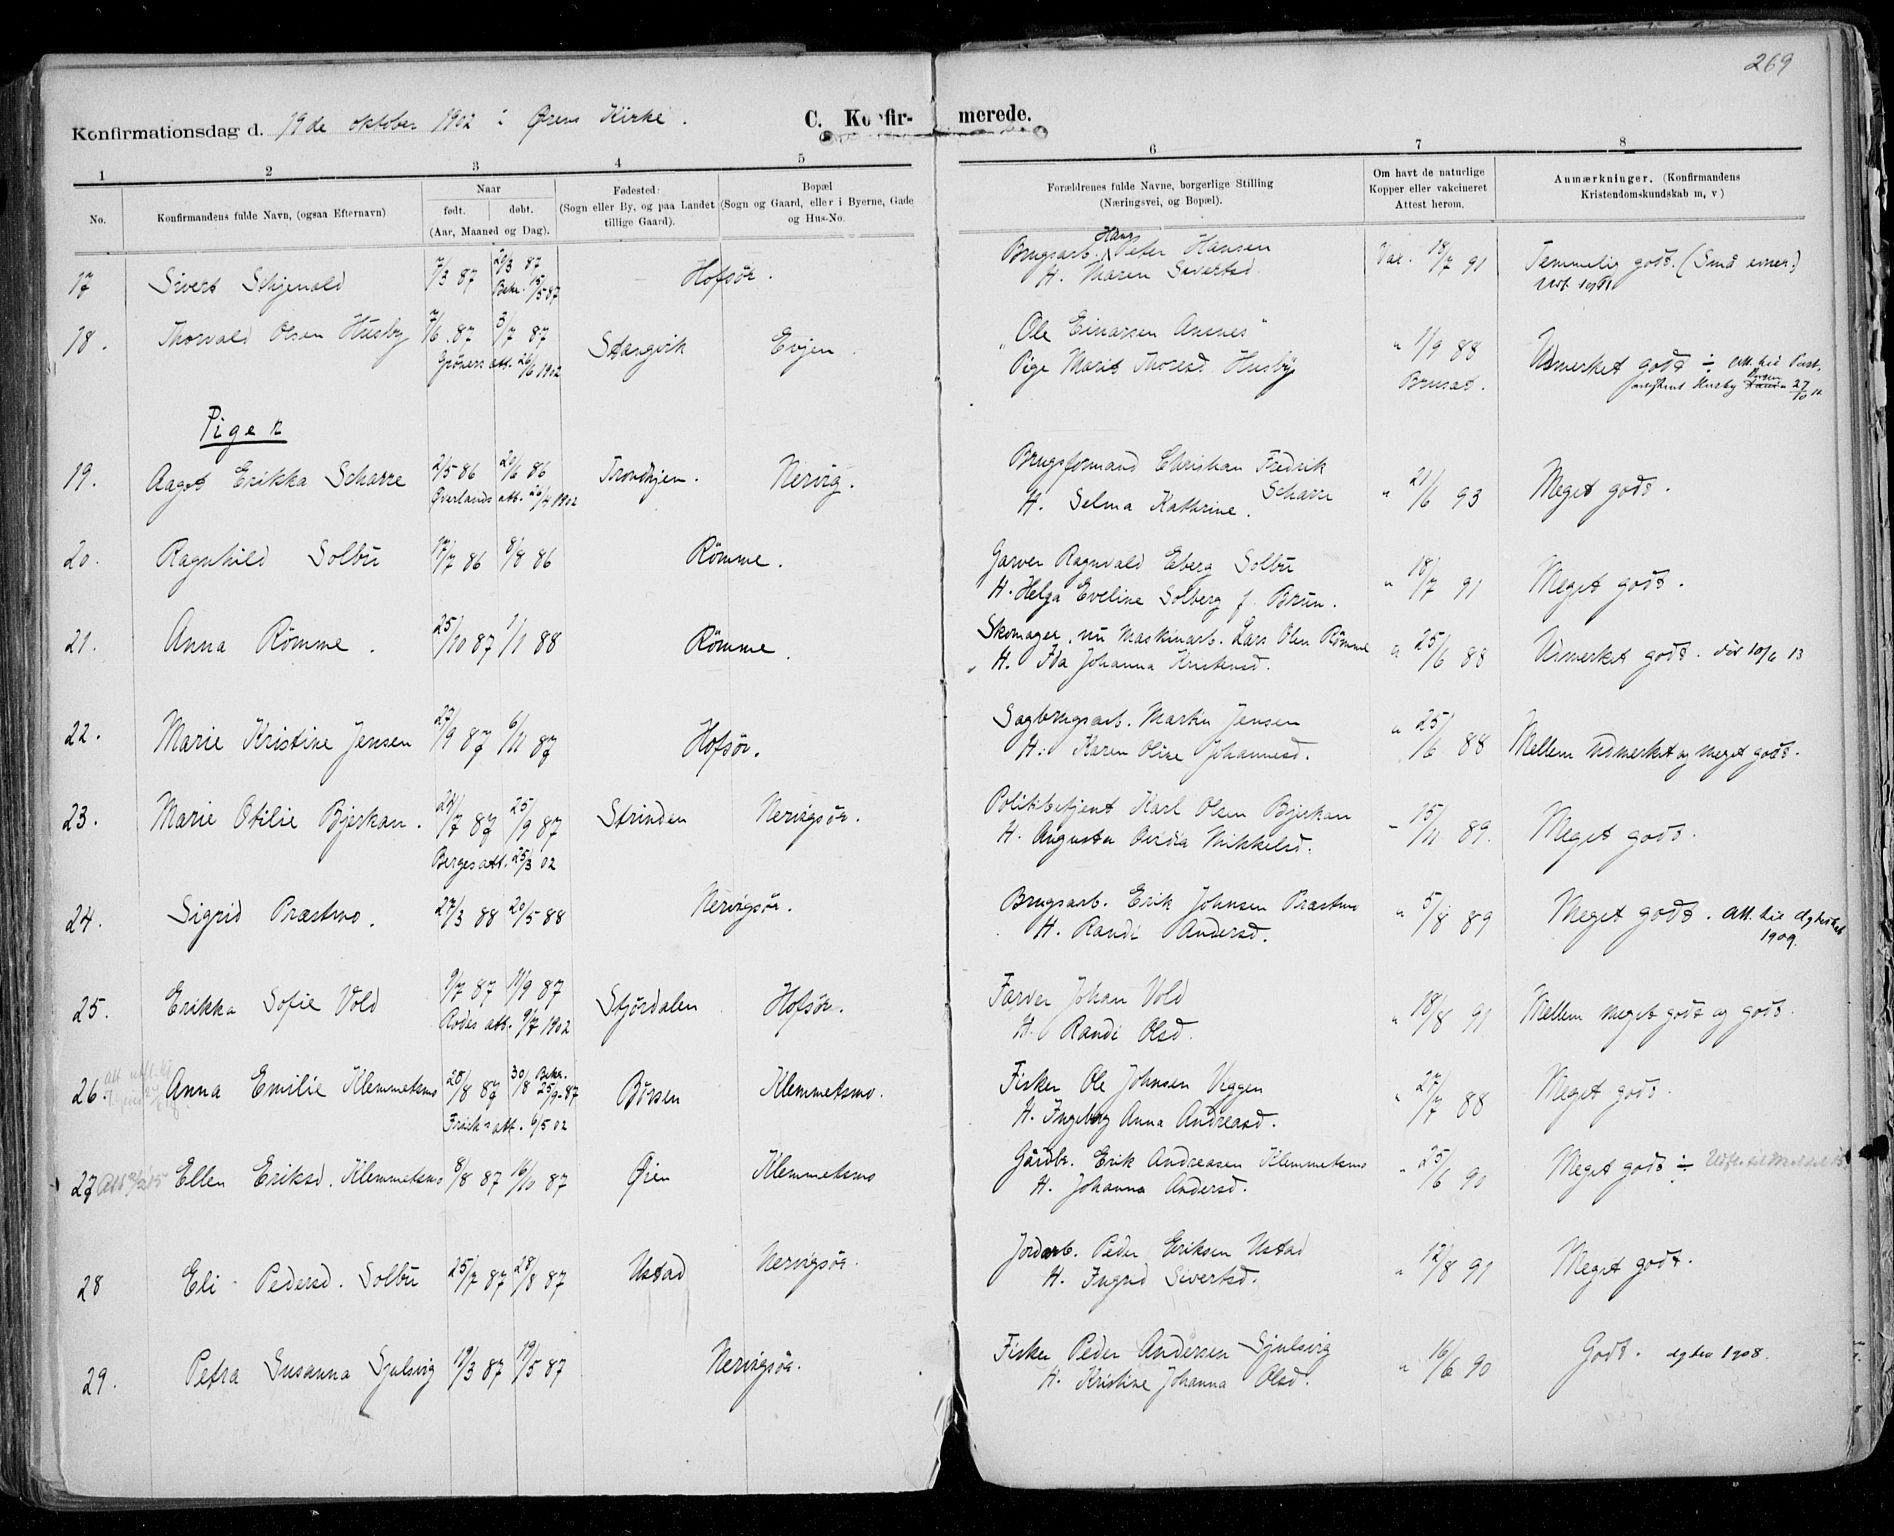 269
Konfirmationsdag d. 19de oktober 1902 i Ørens Kirke. C. Konfirmerede.
1 2 3 4 5 6 7 8
No. Konfirmandens fulde Navn, (ogsaa Efternavn) Naar født. døbt. (Aar, Maaned og Dag). Fødested: (Sogn eller By, og paa Landet tillige Gaard). Bopæl (Sogn og Gaard, eller i Byerne, Gade og Hus-No. Forældrenes fulde Navne, borgerlige Stilling (Næringsvei, og Bopæl). Om havt de naturlige Kopper eller vakcineret Attest herom. Anmærkninger. (Konfirmandens Kristendomskundskab m, v)
17 Sivert 7/3 87 Hofsör. Brugsarb. Hans Peter Hansen Vax. 18/7 91 Temmelig godt. (Små evner.)
Bekr. 15/5 87 H. Maren Sivertsd.
18. Thorvald Olsen Husby 7/6 87 3/7 87 Stangvik Evjen. "Ole Einarsen Aasnes" " 1/9 88 Udmerket godt ÷
att. 26/6 1902 Pige Marit Thoresd Husby
Piger
19. Aagot Erikka Scharre 2/5 86 20/6 86 Trondhjem. Nervig. Brugsformand Christian Fredrik Scharre " 21/6 93 Meget godt.
Överlands att. 26/4 1902 H. Selma Kathrine.
20. Ragnhild Solbu 17/7 86 8/8 86 Römme. Garver Ragnvald Eberg Solbu " 18/7 91 Meget godt.
H. Helga Eveline Solberg f. Brun.
21. Anna Römme. 25/10 87 1/1 88 Römme. Skomager, nu Maskinarb. Lars Olsen Römme " 25/6 88 Udmerket godt. död 10/6 13
H. Ida Johanna Kristensd.
22. Marie Kristine Jensen 27/9 87 6/11 87 Hofsör. Sagbrugsarb. Martin Jensen " 25/6 88 Mellem udmerket og meget godt.
H. Karen Oline Johannesd.
23. Marie Otilie Bjerkan. 24/7 87 25/9 87 Strinden Nervigsör. Politibetjent Karl Olsen Bjerkan " 15/11 89. Meget godt.
Berges att. 25/3 02 H. Augusta Mikkelsd.
24. Sigrid Præstmo. 27/3 88 20/5 88 Nervigsör. Brugsarb. Erik Johnsen Præstmo " 5/8 89 Meget godt. att. til
H. Randi Andersd. 1909.
25. Erikka Sofie Vold 9/7 87 11/9 87 Stjørdalen Hofsör. Farver Johan Vold " 18/8 91 Mellem meget godt og godt.
Rodes att. 9/7 1902 H. Randi Olsd.
26. Anna Emilie Klemmetsmo 28/8 87 30/8 Bekr. 25/9 87 Börsen Klemmetsmo. Fisker Ole Johnsen Viggen " 27/7 88 Meget godt.
att. 6/5 02 H. Ingeborg Anna Andreasd.
27 Ellen Eriksd. Klemmetsmo 8/8 87 16/10 87 Øien Klemmetsmo Gårdbr. Erik Andreasen Klemmetsmo " 25/6 90 Meget godt ÷
H. Johanna Andersd.
28 Eli Pedersd. Solbu 25/7 87 28/8 87 Ustad Nervigsör. Jordarb. Peder Eriksen Ustad " 12/8 91 Meget godt.
H. Ingrid Sivertsd.
29. Petra Susanna Sjulsvig 19/3 87 19/5 87 Nervigsör. Fisker Peder Andersen Sjulsvig " 16/6 90 Godt. dgbev 1908.
H. Kristine Johanna Olsd.